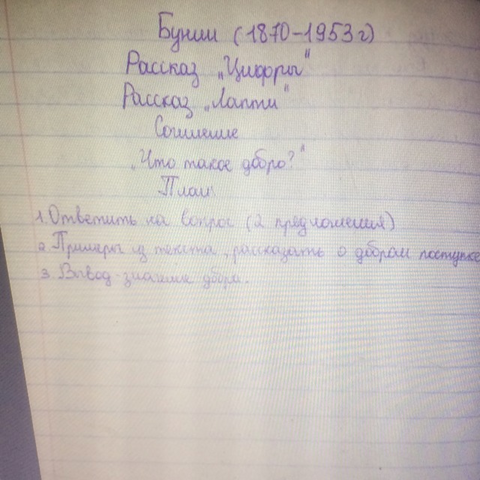 Бунин (1870-1953г)
Рассказ „Цифры"
Рассказ „Лапти"
Сочинение
„Что такое добро?"
План
1. Ответить на вопрос (2 предложения)
2. Примеры из текста, рассказать о добром поступке
3. Вывод-значение добра.